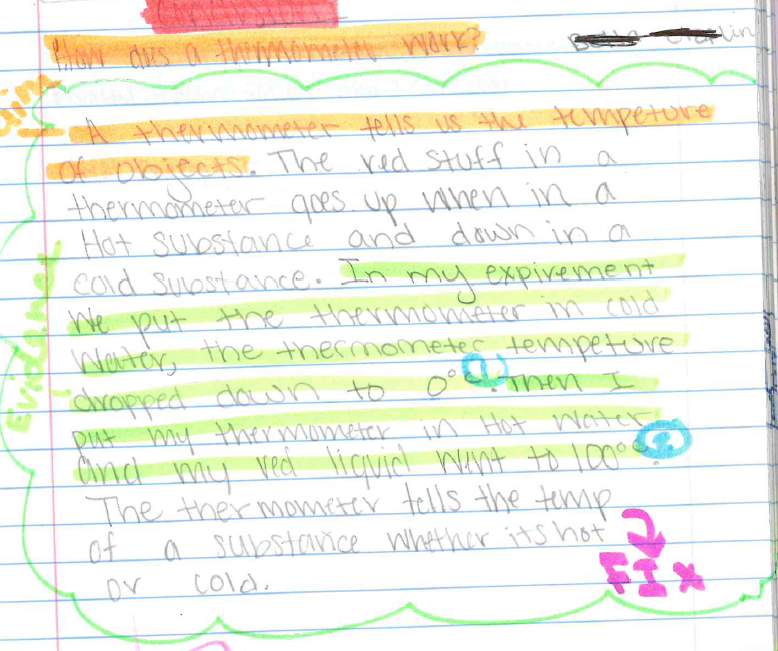 How does a thermometer work?
A thermometer tells us the tempeture
of objects. The red stuff in a
thermometer goes up when in a
Hot substance and down in a
cold substance. In my expirement
We put the thermometer in cold
Water, the thermometer tempeture
dropped down to 0°C. Then I
1
put my thermometer in Hot Water
and my red liquid went to 100°C.
2
Evidence
The thermometer tells the temp
of a substance whether its hot
or cold.
FIX